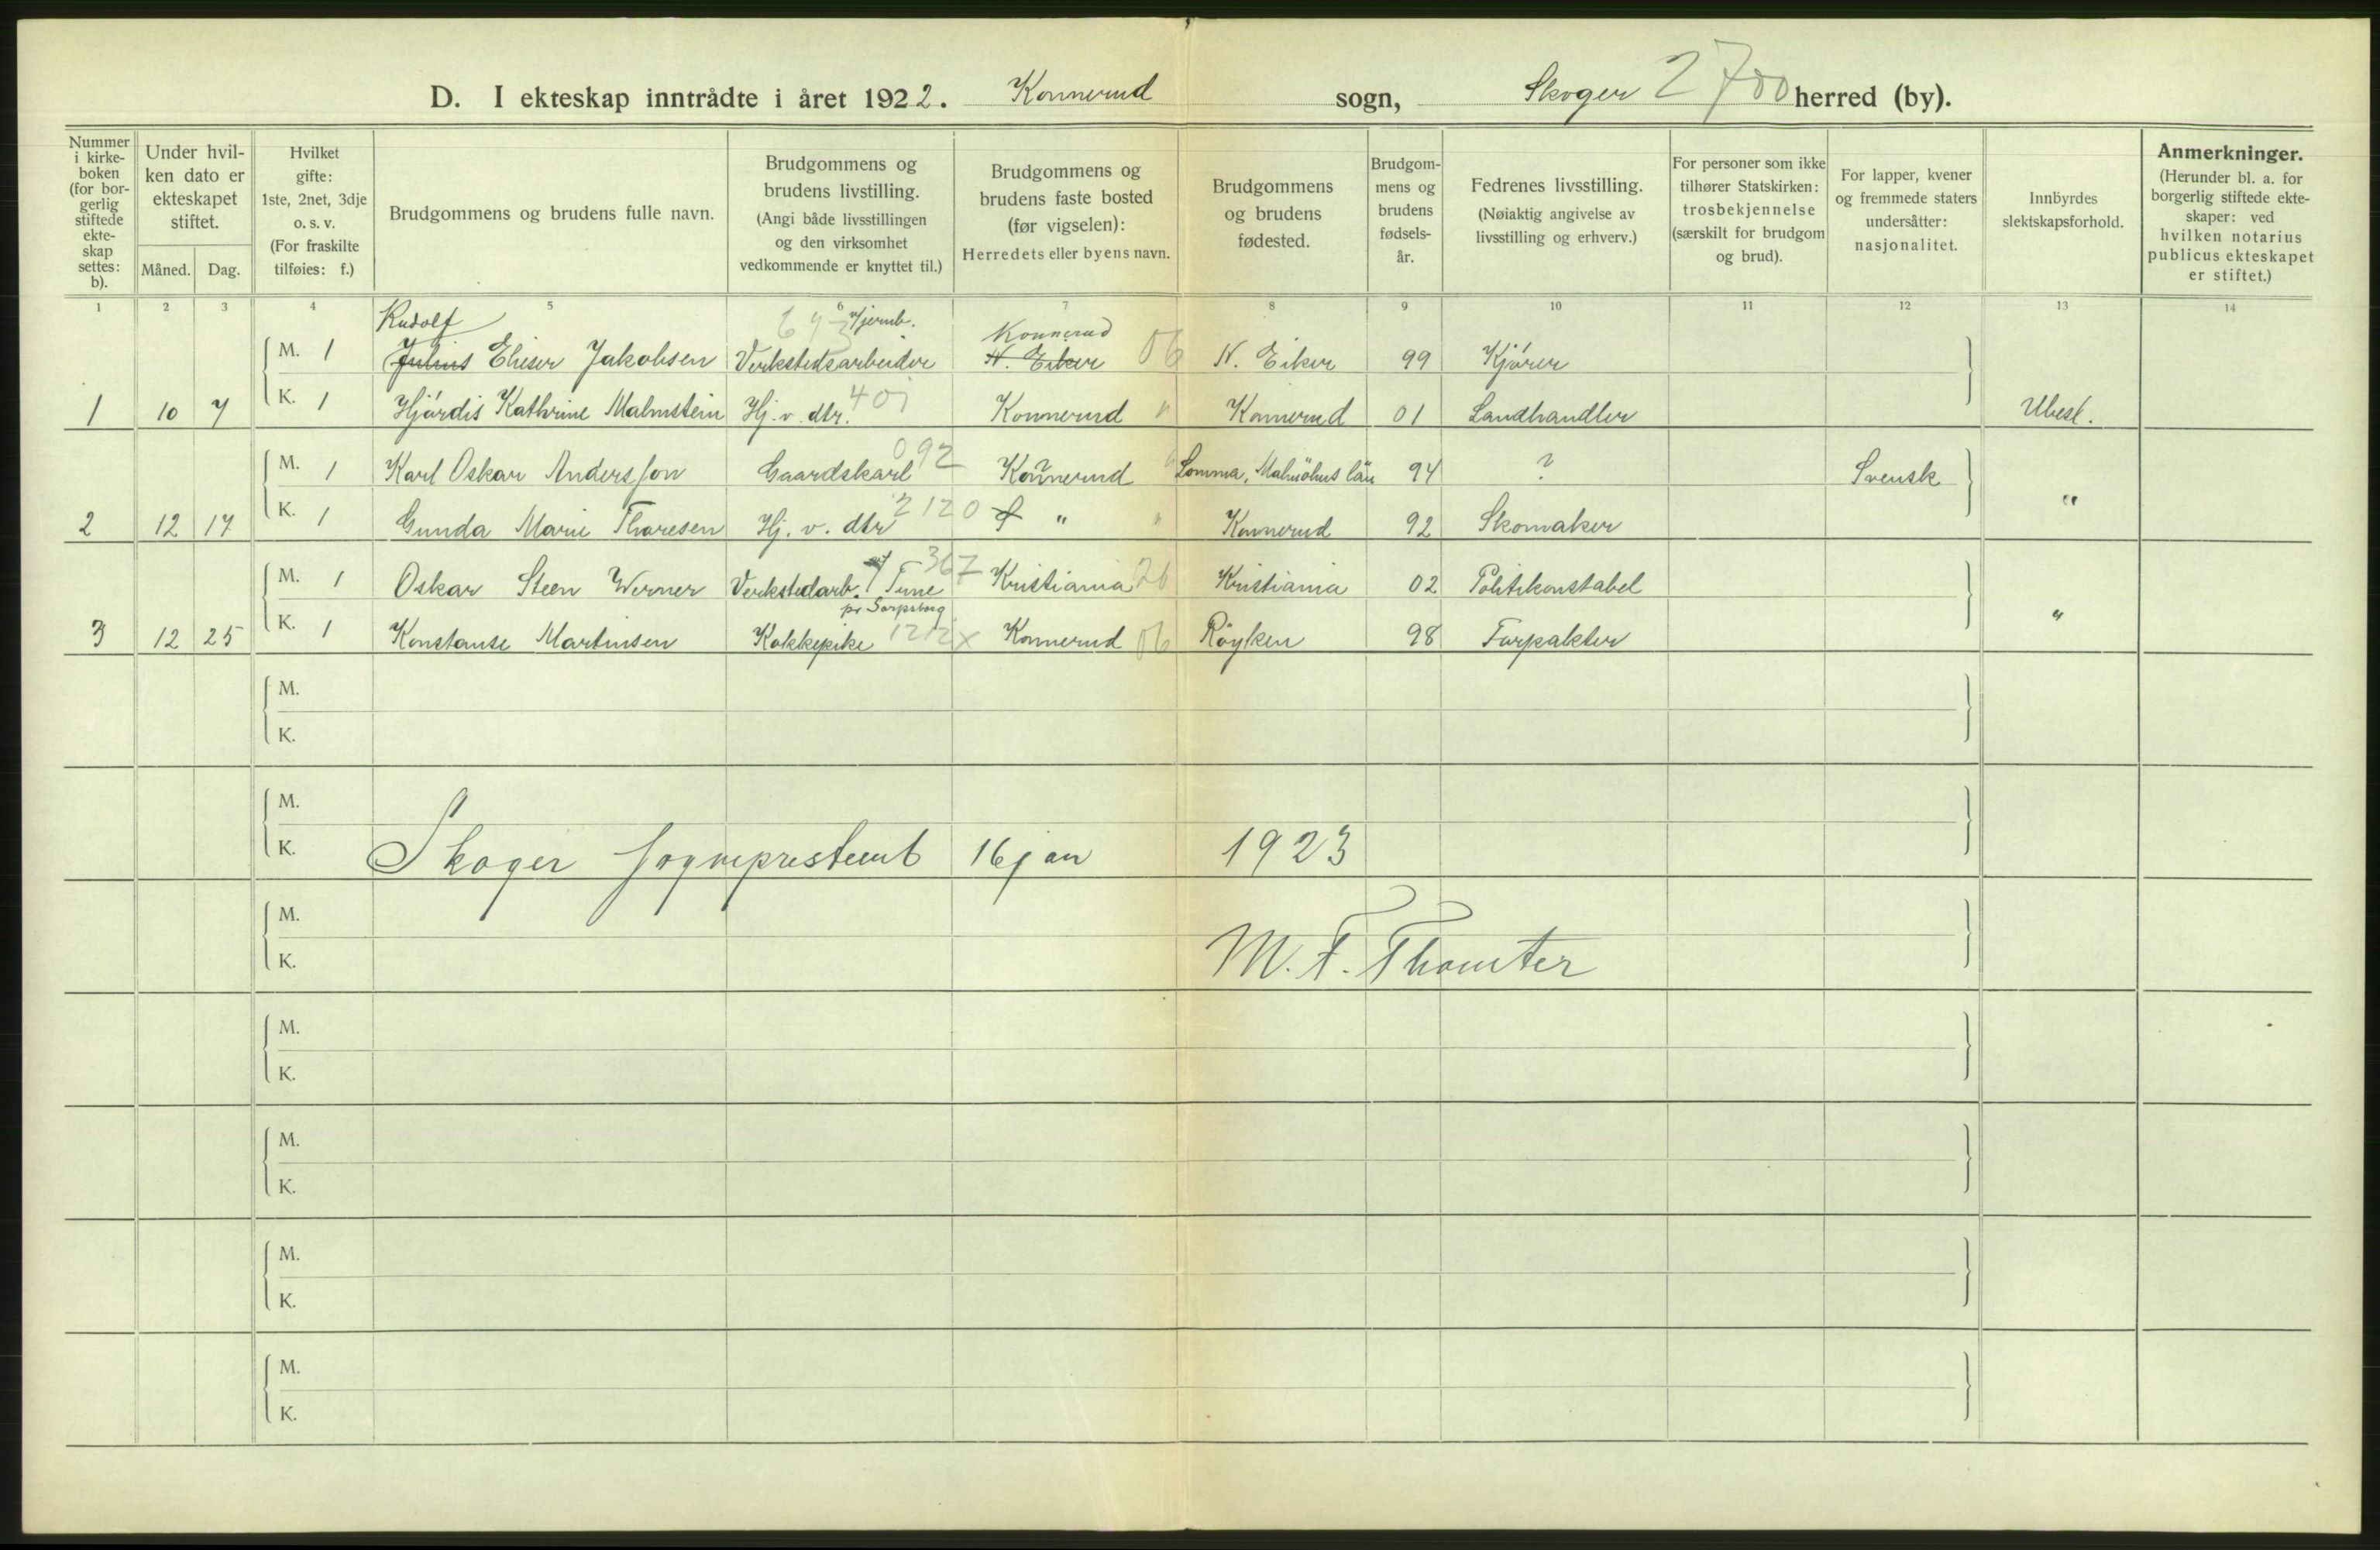 D. I ekteskap inntrådte i året 1922. Konnerud sogn, Skoger 2700 herred (by).
Nummer i kirke- boken (for bor- gerlig stiftede ekte- skap settes: b).
Under hvil- ken dato er ekteskapet stiftet.
Måned. Dag.
Hvilket gifte: 1ste, 2net, 3dje o. s. v. (For fraskilte tilføies: f.)
Brudgommens og brudens fulle navn.
Brudgommens og brudens livstilling. (Angi både livsstillingen og den virksomhet vedkommende er knyttet til.)
Brudgommens og brudens faste bosted (før vigselen): Herredets eller byens navn.
Brudgommens og brudens fødested.
Brudgom- mens og brudens fødsels- år.
Fedrenes livsstilling. (Nøiaktig angivelse av livsstilling og erhverv.)
For personer som ikke tilhører Statskirken: trosbekjennelse (særskilt for brudgom og brud).
For lapper, kvener og fremmede staters undersåtter: nasjonalitet.
Innbyrdes slektskapsforhold.
Anmerkninger. (Herunder bl. a. for borgerlig stiftede ekte- skaper: ved hvilken notarius publicus ekteskapet er stiftet.)
1 2 3 4 5 6 7 8 9 10 11 12 13 14
Rudolf Konnerud
M. 1 Julius Elieser Jakobsen Verkstedsarbeider N. Eiker 06 N. Eiker 99 Kjörer
1 10 7 K. 1 Hjördis Kathrine Malmstein Hj. v. dtr. 401 Konnerud " Konnerud 01 Landhandler Ubesl.
M. 1 Karl Oskar Andersson Gaardskarl 092 Konnerud Lomma, Malmöhus län 94 ? Svensk
2 12 17 K. 1 Gunda Marie Thoresen Hj. v. dtr 2120 " " Konnerud 92 Skomaker "
M. 1 Oskar Steen Werner Verkstedarb. Tune 367 Kristiania 26 Kristiania 02 Politikonstabel
pr Sarpsborg
3 12 25 K. 1 Konstanse Martinsen Kokkepike 1212 x Konnerud 06 Röyken 98 Forpakter "
M.
K.
M.
K. Skoger sogneprestemb 16 jan 1923
M.
K. M. F. Thomter
M.
K.
M.
K.
M.
K.
M.
K.